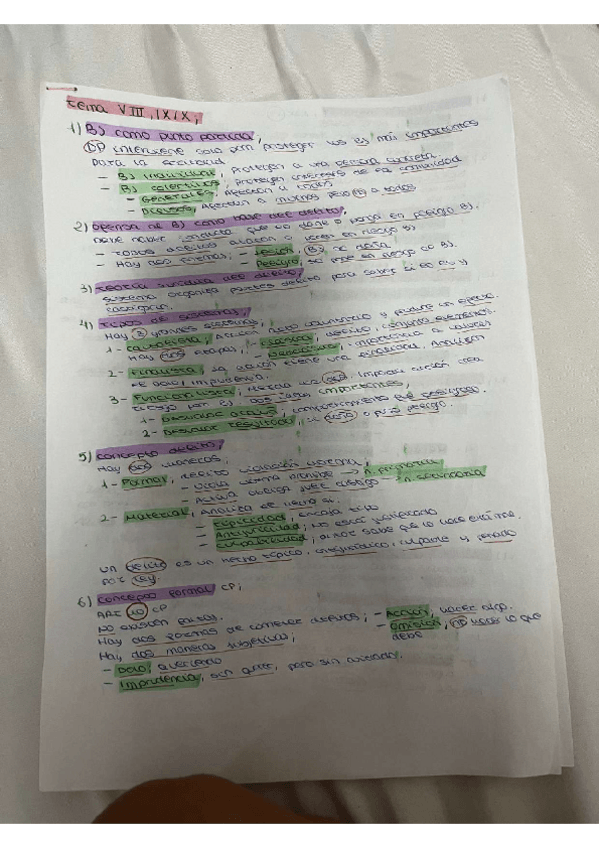 tema VIII, IX/X,
1) BJ como punto partida,
DP interviene solo para proteger los BJ más importantes
para la sociedad
- BJ individual, protegen a una persona concreta
- BJ colectivos, protegen intereses de la comunidad
- Generales, afectan a todos
- Difusos, afectan a muchos pero no a todos
2) ofensa de BJ como base del delito,
debe haber conducta que lo dañe o ponga en peligro BJ.
- todos delitos atacan o ponen en riesgo BJ
- Hay dos formas; - Lesión, BJ se daña
- Peligro, se pone en riesgo do BJ.
3) teoría jurídica del delito,
sistema organiza partes delito para saber si lo es y
castigarlo.
4) tipos de sistemas,
Hay 3 grandes sistemas,
1- causalista, Acción acto voluntario y produce un efecto.
Hay dos etapas, - clásica, delito, conjunto elementos.
- referencia a valores
2- Finalista, la acción tiene una finalidad. Analizan
el dolo/imprudencia.
3- Funcionalista, mezcla los dos. Imponer acción crea
riesgo por BJ, dos ideas importantes,
1- Desvalor acción, comportamiento fue peligroso.
2- Desvalor resultado, si daño o puso peligro.
5) concepto delito,
Hay dos maneras,
1- Formal, delito violación norma,
- Viola norma prohíbe → n. primaria
- Activa obliga juez castigo - n. secundaria
2- Material, Analiza el hecho si.
- tipicidad, encaja tipo
- Antijuricidad, no está justificado
- culpabilidad, autor sabe que lo hace
un delito es un hecho típico, antijurídico, culpable y penado
por ley.
6) concepto formal CP;
Art 10 CP
No existen faltas.
Hay dos formas de cometer delitos; - Acción, hacer algo.
- Omisión, no hacer lo que
debe
Hay, dos maneras subjetivas;
- Dolo, queriendo
- Imprudencia, sin querer, pero sin cuidado.